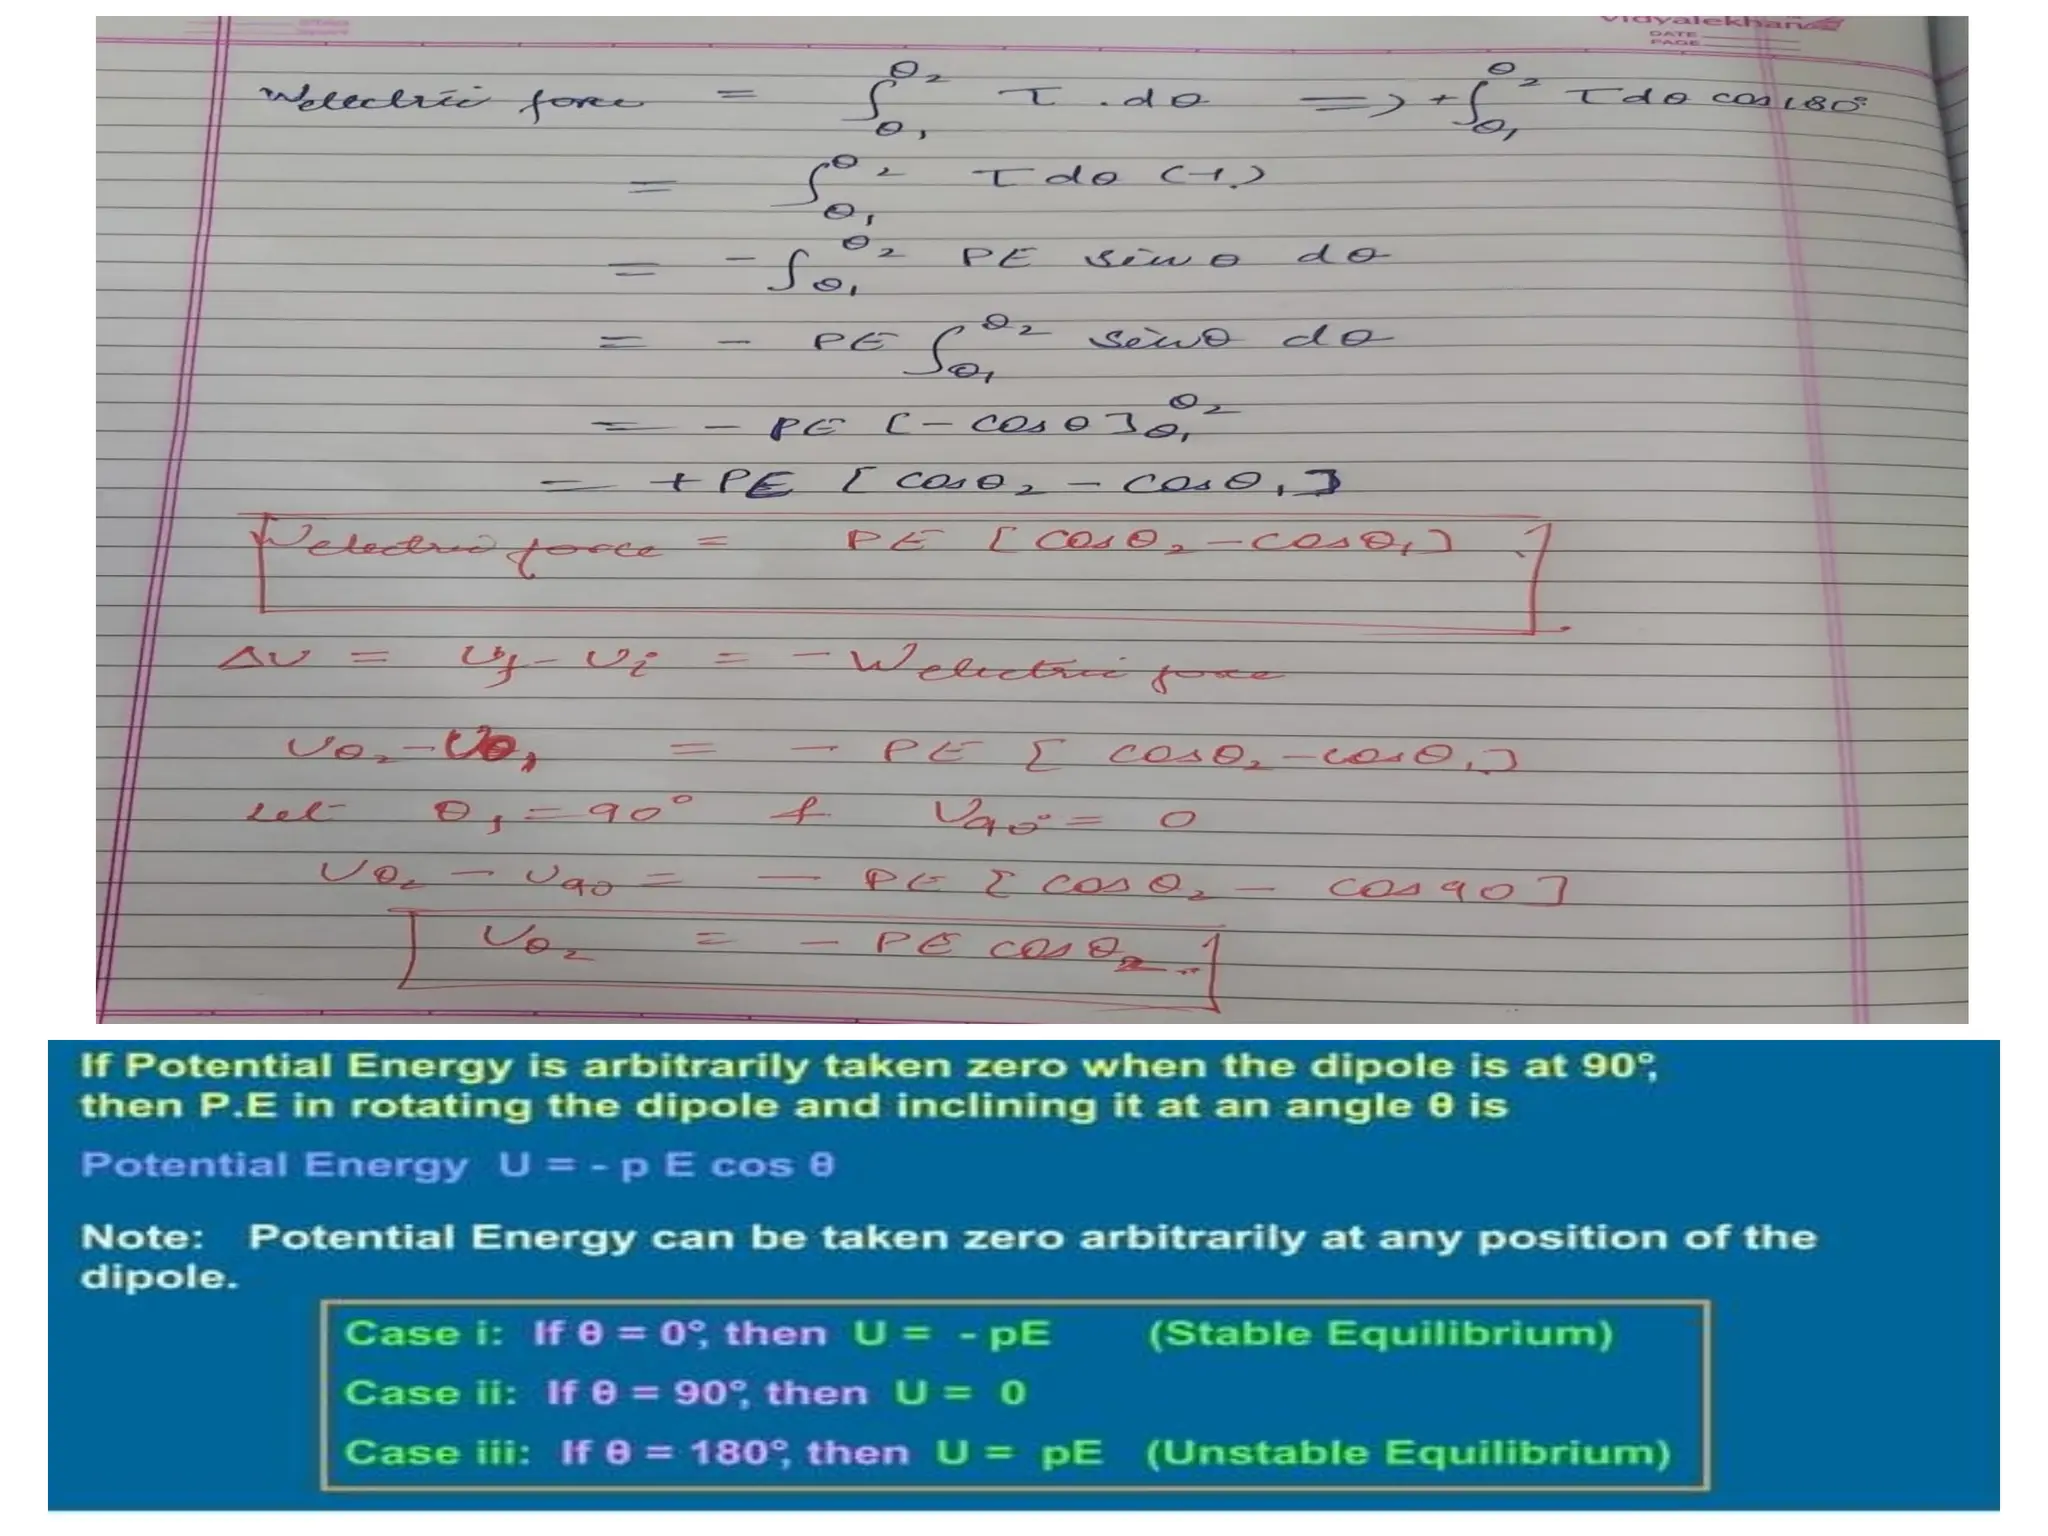 Vidyalekhan
DATE
PAGE
Welectric force = ∫θ₁^θ₂ τ . dθ => +∫θ₁^θ₂ τ dθ cos 180°
= ∫θ₁^θ₂ τ dθ (-1)
= - ∫θ₁^θ₂ PE sinθ dθ
= - PE ∫θ₁^θ₂ sinθ dθ
= - PE [- cosθ]θ₁^θ₂
= + PE [cosθ₂ - cosθ₁]
Welectric force = PE [cosθ₂ - cosθ₁]
ΔU = Uf - Ui = - Welectric force
Uθ₂ - Uθ₁ = - PE [cosθ₂ - cosθ₁]
Let θ₁ = 90° & U90° = 0
Uθ₂ - U90 = - PE [cosθ₂ - cos90]
Uθ₂ = - PE cosθ₂
If Potential Energy is arbitrarily taken zero when the dipole is at 90°,
then P.E in rotating the dipole and inclining it at an angle θ is
Potential Energy U = - p E cos θ
Note: Potential Energy can be taken zero arbitrarily at any position of the
dipole.
Case i: If θ = 0°, then U = - pE (Stable Equilibrium)
Case ii: If θ = 90°, then U = 0
Case iii: If θ = 180°, then U = pE (Unstable Equilibrium)